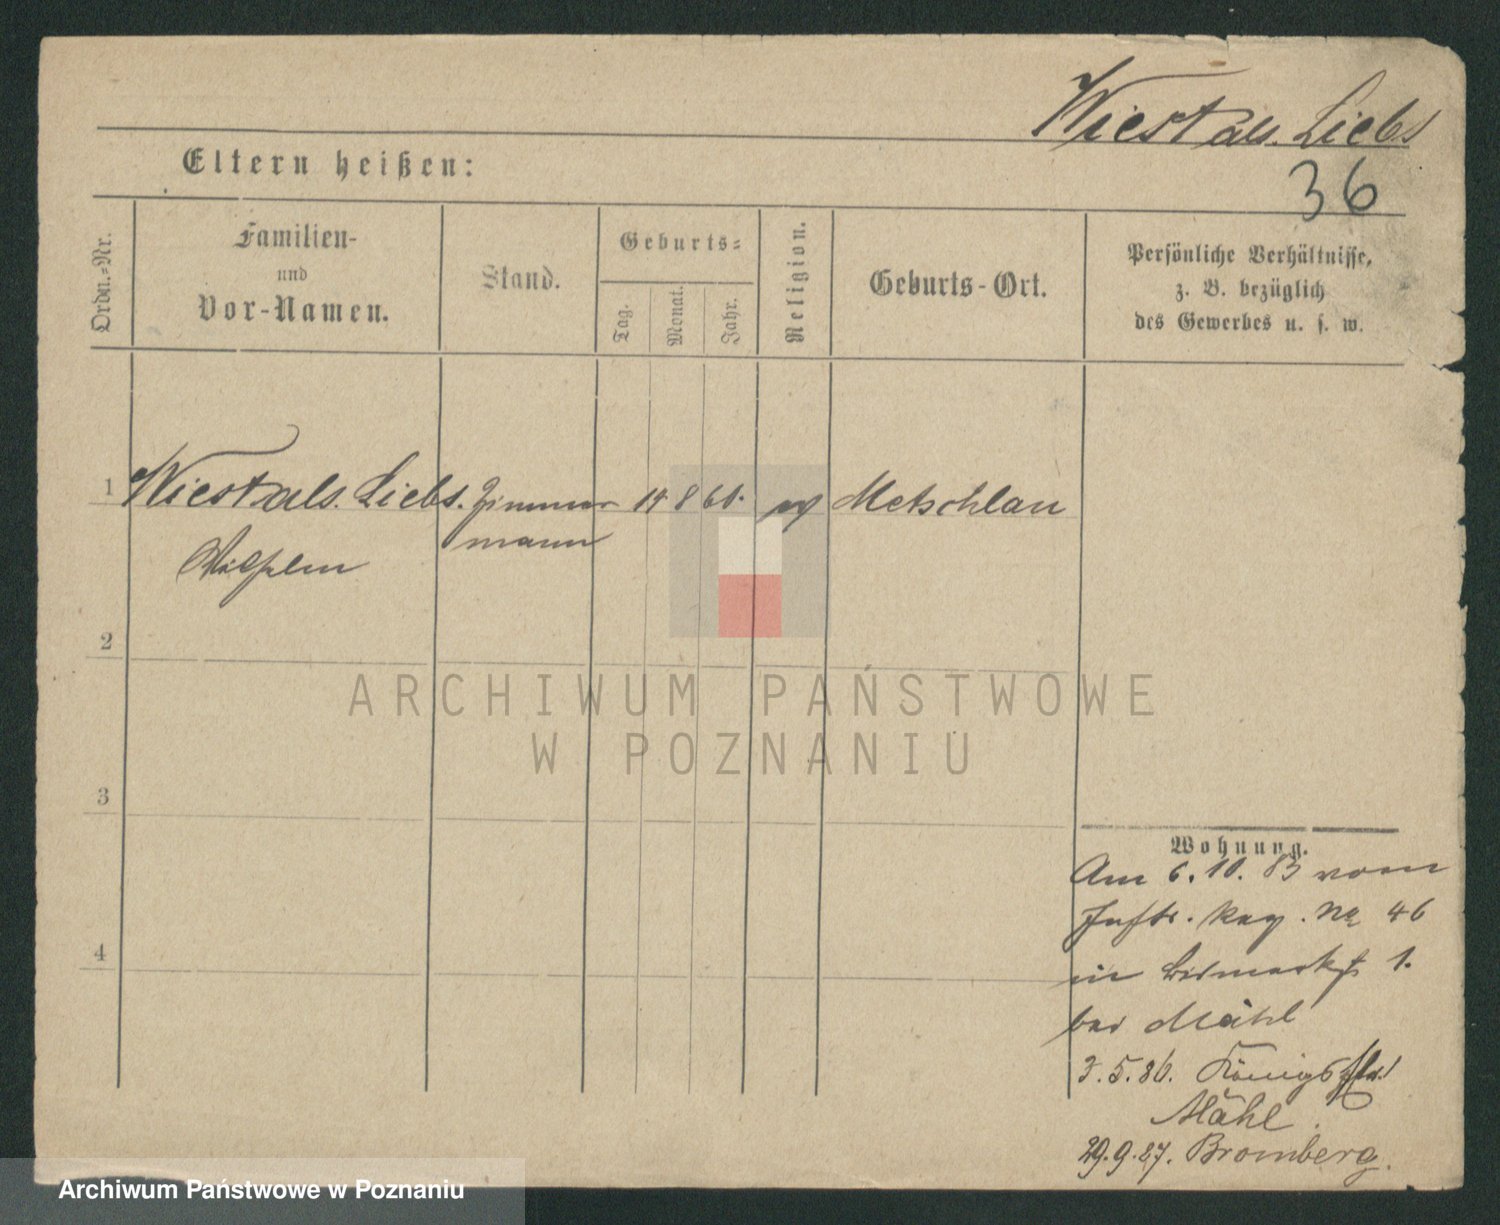 Wiest als. Liebs
36
Eltern heißen:
Ordn.-Nr.
Familien-
und
Vor-Namen.
Stand.
Geburts-
Tag.
Monat.
Jahr.
Religion.
Geburts-Ort.
Persönliche Verhältnisse,
z. B. bezüglich
des Gewerbes u. s. w.
1 Wiest als. Liebs. Zimmer 14 8 61. ev Metschlau
Wilhelm mann
2
ARCHIWUM PAŃSTWOWE
W POZNANIU
3
Wohnung.
Am 6.10.83 vom
Inftr. Reg. No 46
in Bismarckst 1.
bei Mähl
4
3.5.86. Königs
Mähl.
29.9.87. Bromberg.
Archiwum Państwowe w Poznaniu